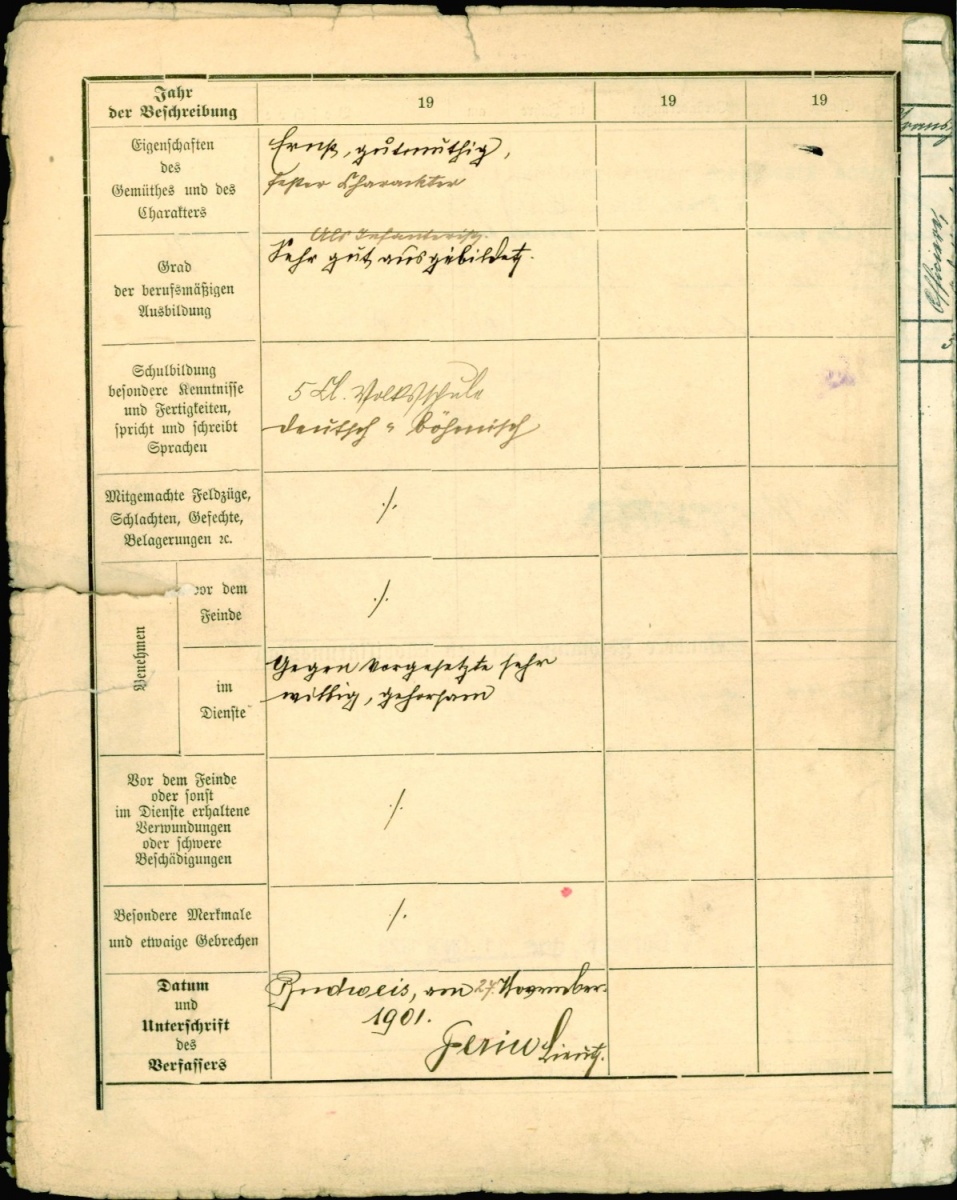 Jahr
der Beschreibung
19
19
19
Eigenschaften
des
Gemüthes und des
Charakters
Ernst, gutmüthig,
fester Charackter
Grad
der berufsmäßigen
Ausbildung
Als Infanterist
Sehr gut ausgebildet.
Schulbildung
besondere Kenntnisse
und Fertigkeiten,
spricht und schreibt
Sprachen
5 Cl. Volksschule
deutsch u Böhmisch
Mitgemachte Feldzüge,
Schlachten, Gefechte,
Belagerungen ꝛc.
./.
Benehmen
vor dem
Feinde
./.
im
Dienste
Gegen Vorgesetzte sehr
willig, gehorsam
Vor dem Feinde
oder sonst
im Dienste erhaltene
Verwundungen
oder schwere
Beschädigungen
./.
Besondere Merkmale
und etwaige Gebrechen
./.
Datum
und
Unterschrift
des
Verfassers
Budweis, am 27. November
1901.
Lieut.
Officiere,